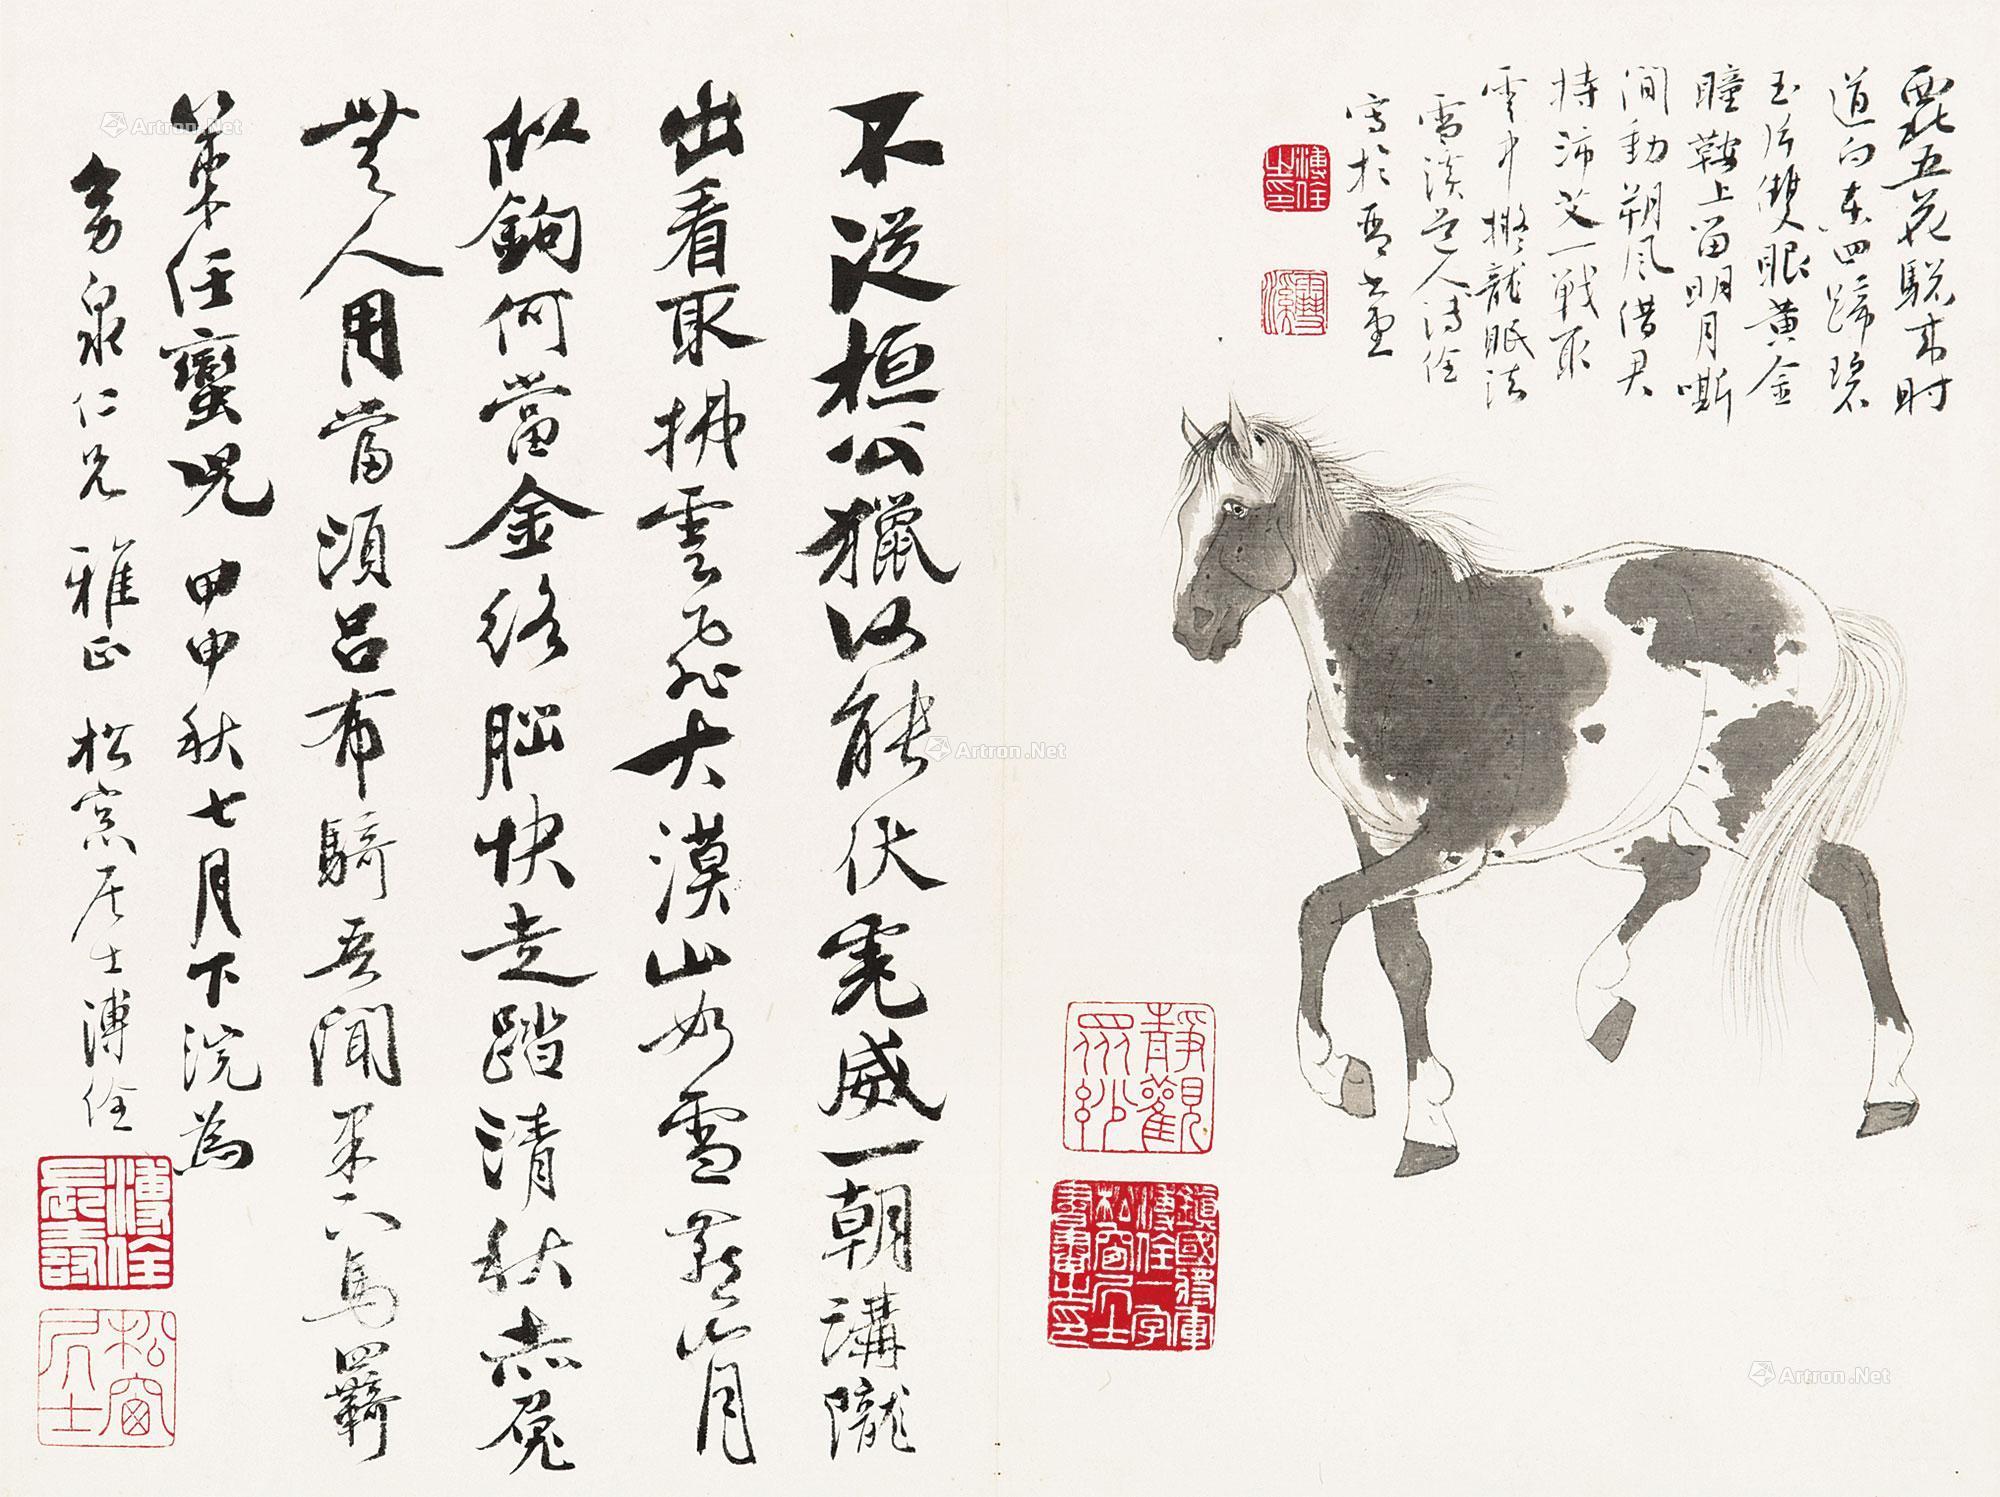 西北五花驄來時
道向東四蹄碧
玉片雙眼黃金
瞳鞍上留明月嘶
間動朔風借君
持沛艾一戰取
雲中 擬龍眠法
雪溪道人溥佺
寫於
溥佺之印
雪溪
靜觀眾妙
鎮國將軍
溥佺一字
松窗居士
書畫之印
不從桓公獵何能伏虎威一朝溝隴
出看取拂雲飛大漠山如雪燕山月
似鉤何當金絡腦快走踏清秋赤兔
無人用當須呂布騎吾聞果下馬羈
策任蠻兒 甲申秋七月下浣為
泉仁兄 雅正 松窗居士溥佺
溥佺長壽
松窗居士
Artron.Net
Artron.Net
Artron.Net